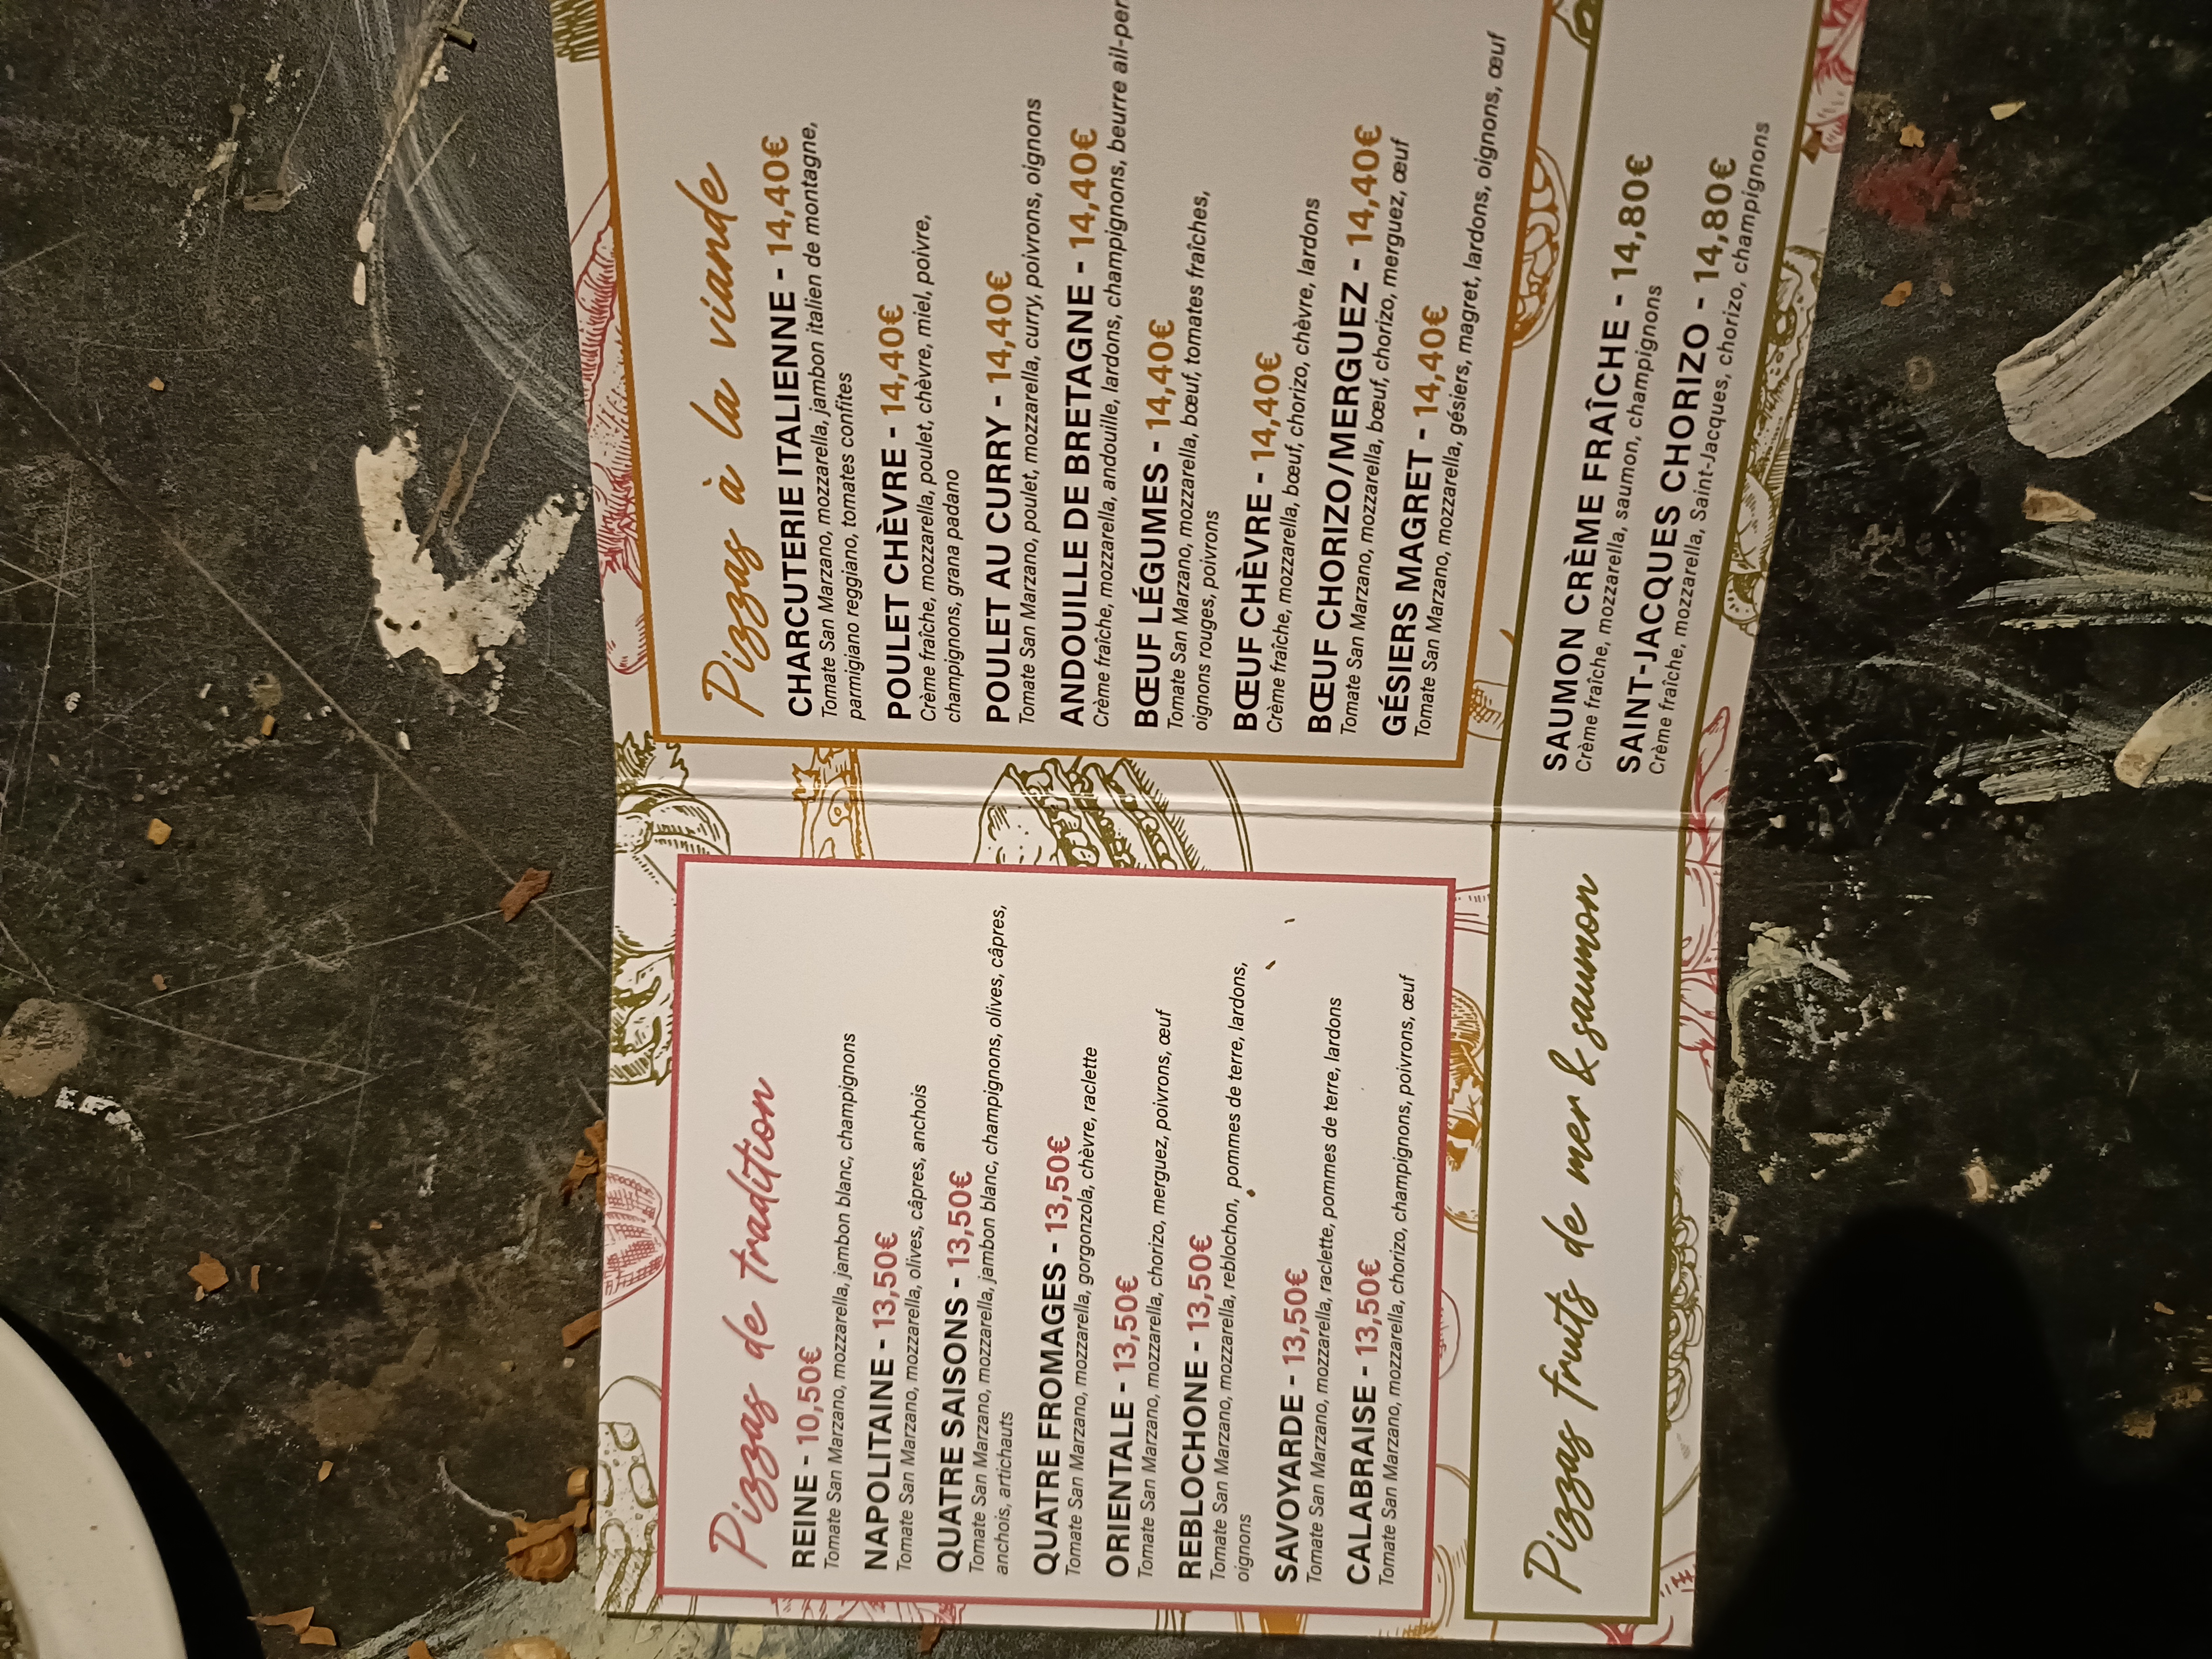 Pizzas de tradition
REINE - 10,50€
Tomate San Marzano, mozzarella, jambon blanc, champignons
NAPOLITAINE - 13,50€
Tomate San Marzano, mozzarella, olives, câpres, anchois
QUATRE SAISONS - 13,50€
Tomate San Marzano, mozzarella, jambon blanc, champignons, olives, câpres,
anchois, artichauts
QUATRE FROMAGES - 13,50€
Tomate San Marzano, mozzarella, gorgonzola, chèvre, raclette
ORIENTALE - 13,50€
Tomate San Marzano, mozzarella, chorizo, merguez, poivrons, œuf
REBLOCHONE - 13,50€
Tomate San Marzano, mozzarella, reblochon, pommes de terre, lardons,
oignons
SAVOYARDE - 13,50€
Tomate San Marzano, mozzarella, raclette, pommes de terre, lardons
CALABRAISE - 13,50€
Tomate San Marzano, mozzarella, chorizo, champignons, poivrons, œuf
Pizzas à la viande
CHARCUTERIE ITALIENNE - 14,40€
Tomate San Marzano, mozzarella, jambon italien de montagne,
parmigiano reggiano, tomates confites
POULET CHÈVRE - 14,40€
Crème fraîche, mozzarella, poulet, chèvre, miel, poivre,
champignons, grana padano
POULET AU CURRY - 14,40€
Tomate San Marzano, poulet, mozzarella, curry, poivrons, oignons
ANDOUILLE DE BRETAGNE - 14,40€
Crème fraîche, mozzarella, andouille, lardons, champignons, beurre ail-per
BŒUF LÉGUMES - 14,40€
Tomate San Marzano, mozzarella, bœuf, tomates fraîches,
oignons rouges, poivrons
BŒUF CHÈVRE - 14,40€
Crème fraîche, mozzarella, bœuf, chorizo, chèvre, lardons
BŒUF CHORIZO/MERGUEZ - 14,40€
Tomate San Marzano, mozzarella, bœuf, chorizo, merguez, œuf
GÉSIERS MAGRET - 14,40€
Tomate San Marzano, mozzarella, gésiers, magret, lardons, oignons, œuf
Pizzas fruits de mer & saumon
SAUMON CRÈME FRAÎCHE - 14,80€
Crème fraîche, mozzarella, saumon, champignons
SAINT-JACQUES CHORIZO - 14,80€
Crème fraîche, mozzarella, Saint-Jacques, chorizo, champignons